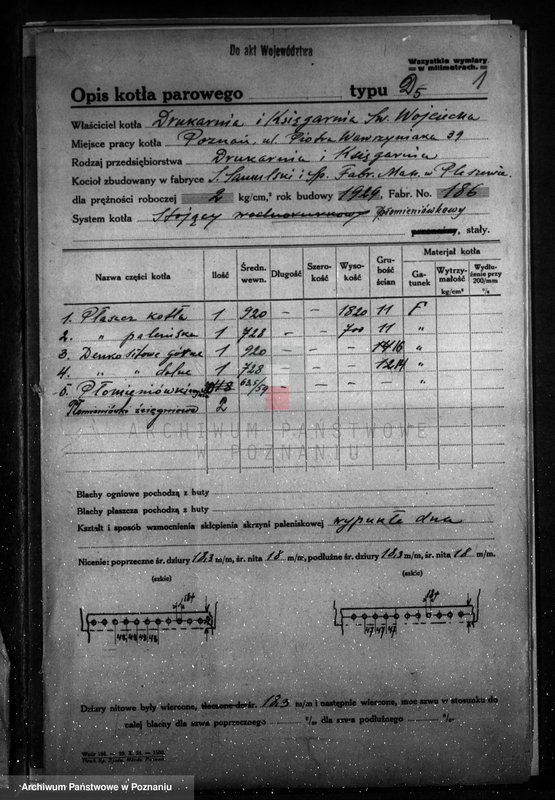 Do akt Województwa
Wszystkie wymiary
w milimetrach.
1
Opis kotła parowego typu D5
Właściciel kotła Drukarnia i Księgarnia Św. Wojciecha
Miejsce pracy kotła Poznań, ul. Piotra Wawrzyniaka 39
Rodzaj przedsiębiorstwa Drukarnia i Księgarnia
Kocioł zbudowany w fabryce S. Samulski i Sp. Fabr. Masz. w Pleszewie
dla prężności roboczej 2 kg/cm², rok budowy 1929, Fabr. No. 186
System kotła Stojący płomieniówkowy
stały.
Nazwa części kotła Ilość Średn. wewn. Długość Szerokość Wysokość Grubość ścian Materjał kotła
Gatunek Wytrzymałość kg/cm² Wydłużenie przy 200/mm %
1. Płaszcz kotła 1 920 – – 1820 11 F
2. " paleniska 1 728 – – 700 11 "
3. Denko sitowe górne 1 920 – – – 16 "
4. " " dolne 1 728 – – – 14 "
5. Płomieniówki 63,5/59 – – – – "
Płomieniówki ściągniowe 2
ARCHIWUM PAŃSTWOWE
W POZNANIU
Blachy ogniowe pochodzą z huty
Blachy płaszcza pochodzą z huty
Kształt i sposób wzmocnienia sklepienia skrzyni paleniskowej wypukłe dna
Nicenie: poprzeczne śr. dziury 18,3 m/m, śr. nita 18 m/m, podłużne śr. dziury 18,3 m/m, śr. nita 18 m/m.
(szkic) (szkic)
184 184
48 48 48 48 47 47 47
Dziury nitowe były wiercone, tłoczone do śr. 18,3 m/m i następnie wiercone, moc szwu w stosunku do
całej blachy dla szwa poprzecznego %, dla szwa podłużnego %.
Archiwum Państwowe w Poznaniu